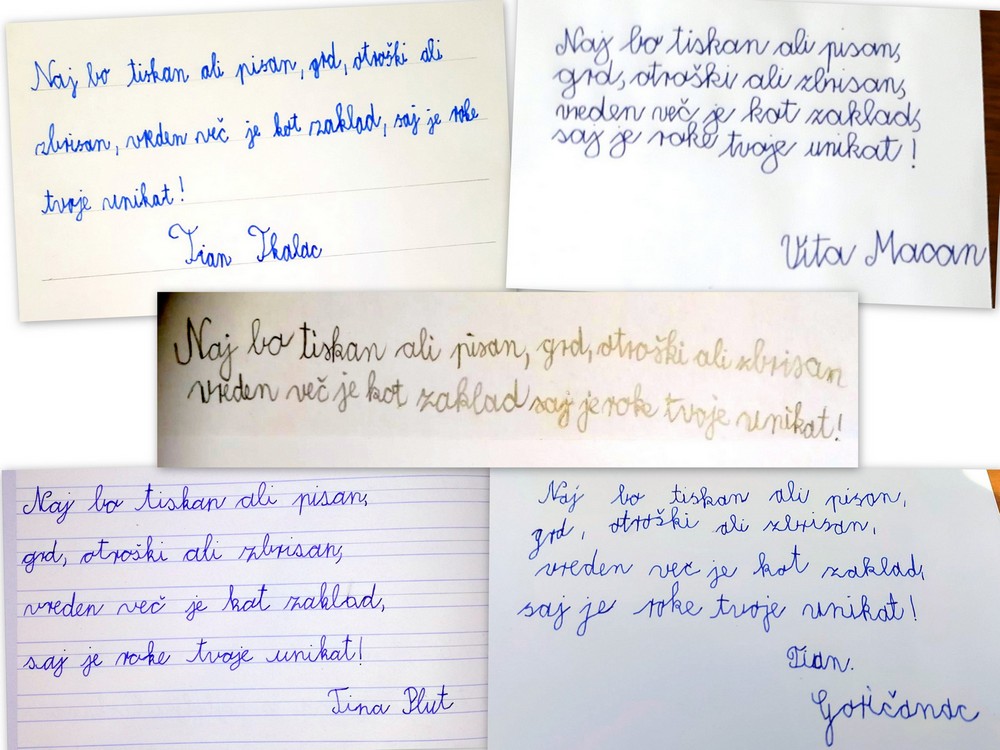 Naj bo tiskan ali pisan, grd, otroški ali
zbrisan, vreden več je kot zaklad, saj je roke
tvoje unikat!
Tian Tkalac
Naj bo tiskan ali pisan,
grd, otroški ali zbrisan,
vreden več je kot zaklad,
saj je roke tvoje unikat!
Vita Macan
Naj bo tiskan ali pisan, grd, otroški ali zbrisan
vreden več je kot zaklad saj je roke tvoje unikat!
Naj bo tiskan ali pisan,
grd, otroški ali zbrisan,
vreden več je kot zaklad,
saj je roke tvoje unikat!
Tina Plut
Naj bo tiskan ali pisan,
grd, otroški ali zbrisan,
vreden več je kot zaklad,
saj je roke tvoje unikat!
Tian.
Goričanac